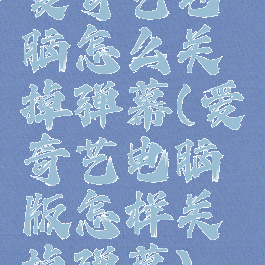 爱奇艺电
脑怎么关
掉弹幕(爱
奇艺电脑
版怎样关
掉弹幕)